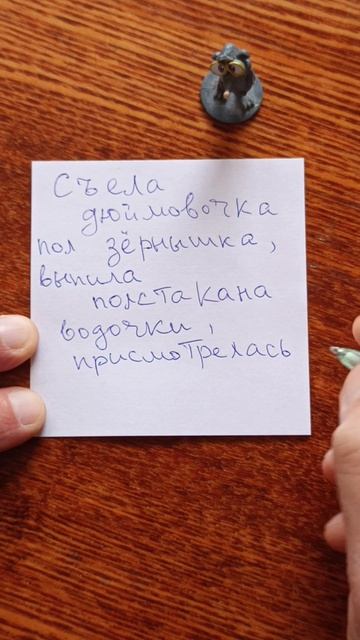 Съела
дюймовочка
пол зёрнышка,
выпила
полстакана
водочки,
присмотрелась